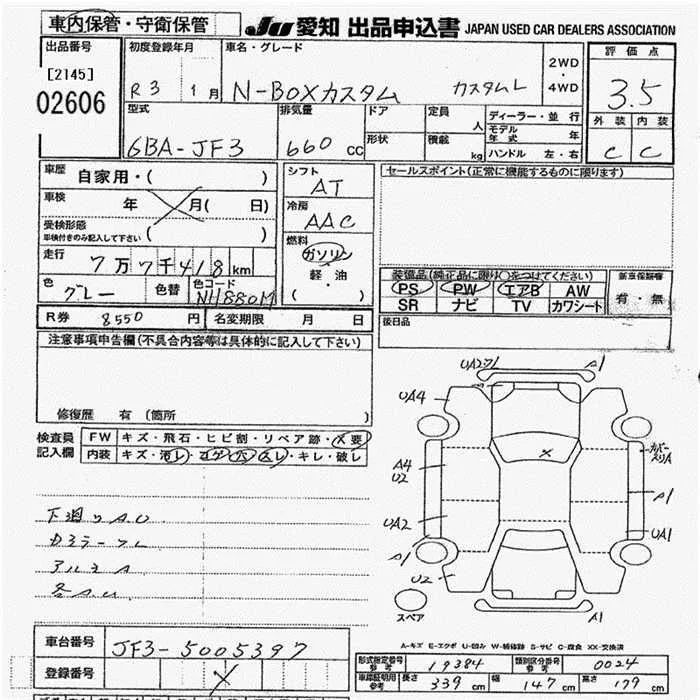 車内保管・守衛保管
JU 愛知 出品申込書 JAPAN USED CAR DEALERS ASSOCIATION
出品番号
[2145]
02606
初度登録年月
R3 1月
車名・グレード
N-BOXカスタム カスタムL
2WD
・
4WD
評価点
3.5
外装 内装
C C
型式
6BA-JF3
排気量
660 cc
ドア
形状
定員
人
積載
kg
ディーラー・並行
モデル年式 年
ハンドル 左・右
車歴 自家用・( )
車検 年 月( 日)
受検形態
車検付きのみ記入して下さい ( )
走行 7万7千418km
色 グレー 色替 色コード NH880M
シフト
AT
冷房
AAC
燃料
ガソリン
・
軽・油
( )
セールスポイント(正常に機能するものに限ります)
装備品(純正品に限り○をつけてください) 新車保険権
PS PW エアB AW 有・無
SR ナビ TV カワシート
R券 8550円 名変期限 月 日
後日品
注意事項申告欄(不具合内容等は具体的に記入して下さい)
修復歴 有 (箇所 )
検査員
記入欄
FW キズ・飛石・ヒビ割・リペア跡・X要
内装 キズ・汚レ・コゲ・穴・スレ・キレ・破レ
下廻りA.U
アルミA
各A.U
UA2 A1
UA4
A4
U2
UA2
A1
U2
カバー
スリA
A1
UA1
A1
X
スペア
A-キズ E-エクボ U-凹み W-補修跡 S-サビ C-腐食 XX-交換済
車台番号 JF3-5005397
登録番号
形式指定番号
参考
19384
類別区分番号
参考
0024
車庫証明用
参考
長さ 339cm 幅 147cm 高さ 179cm